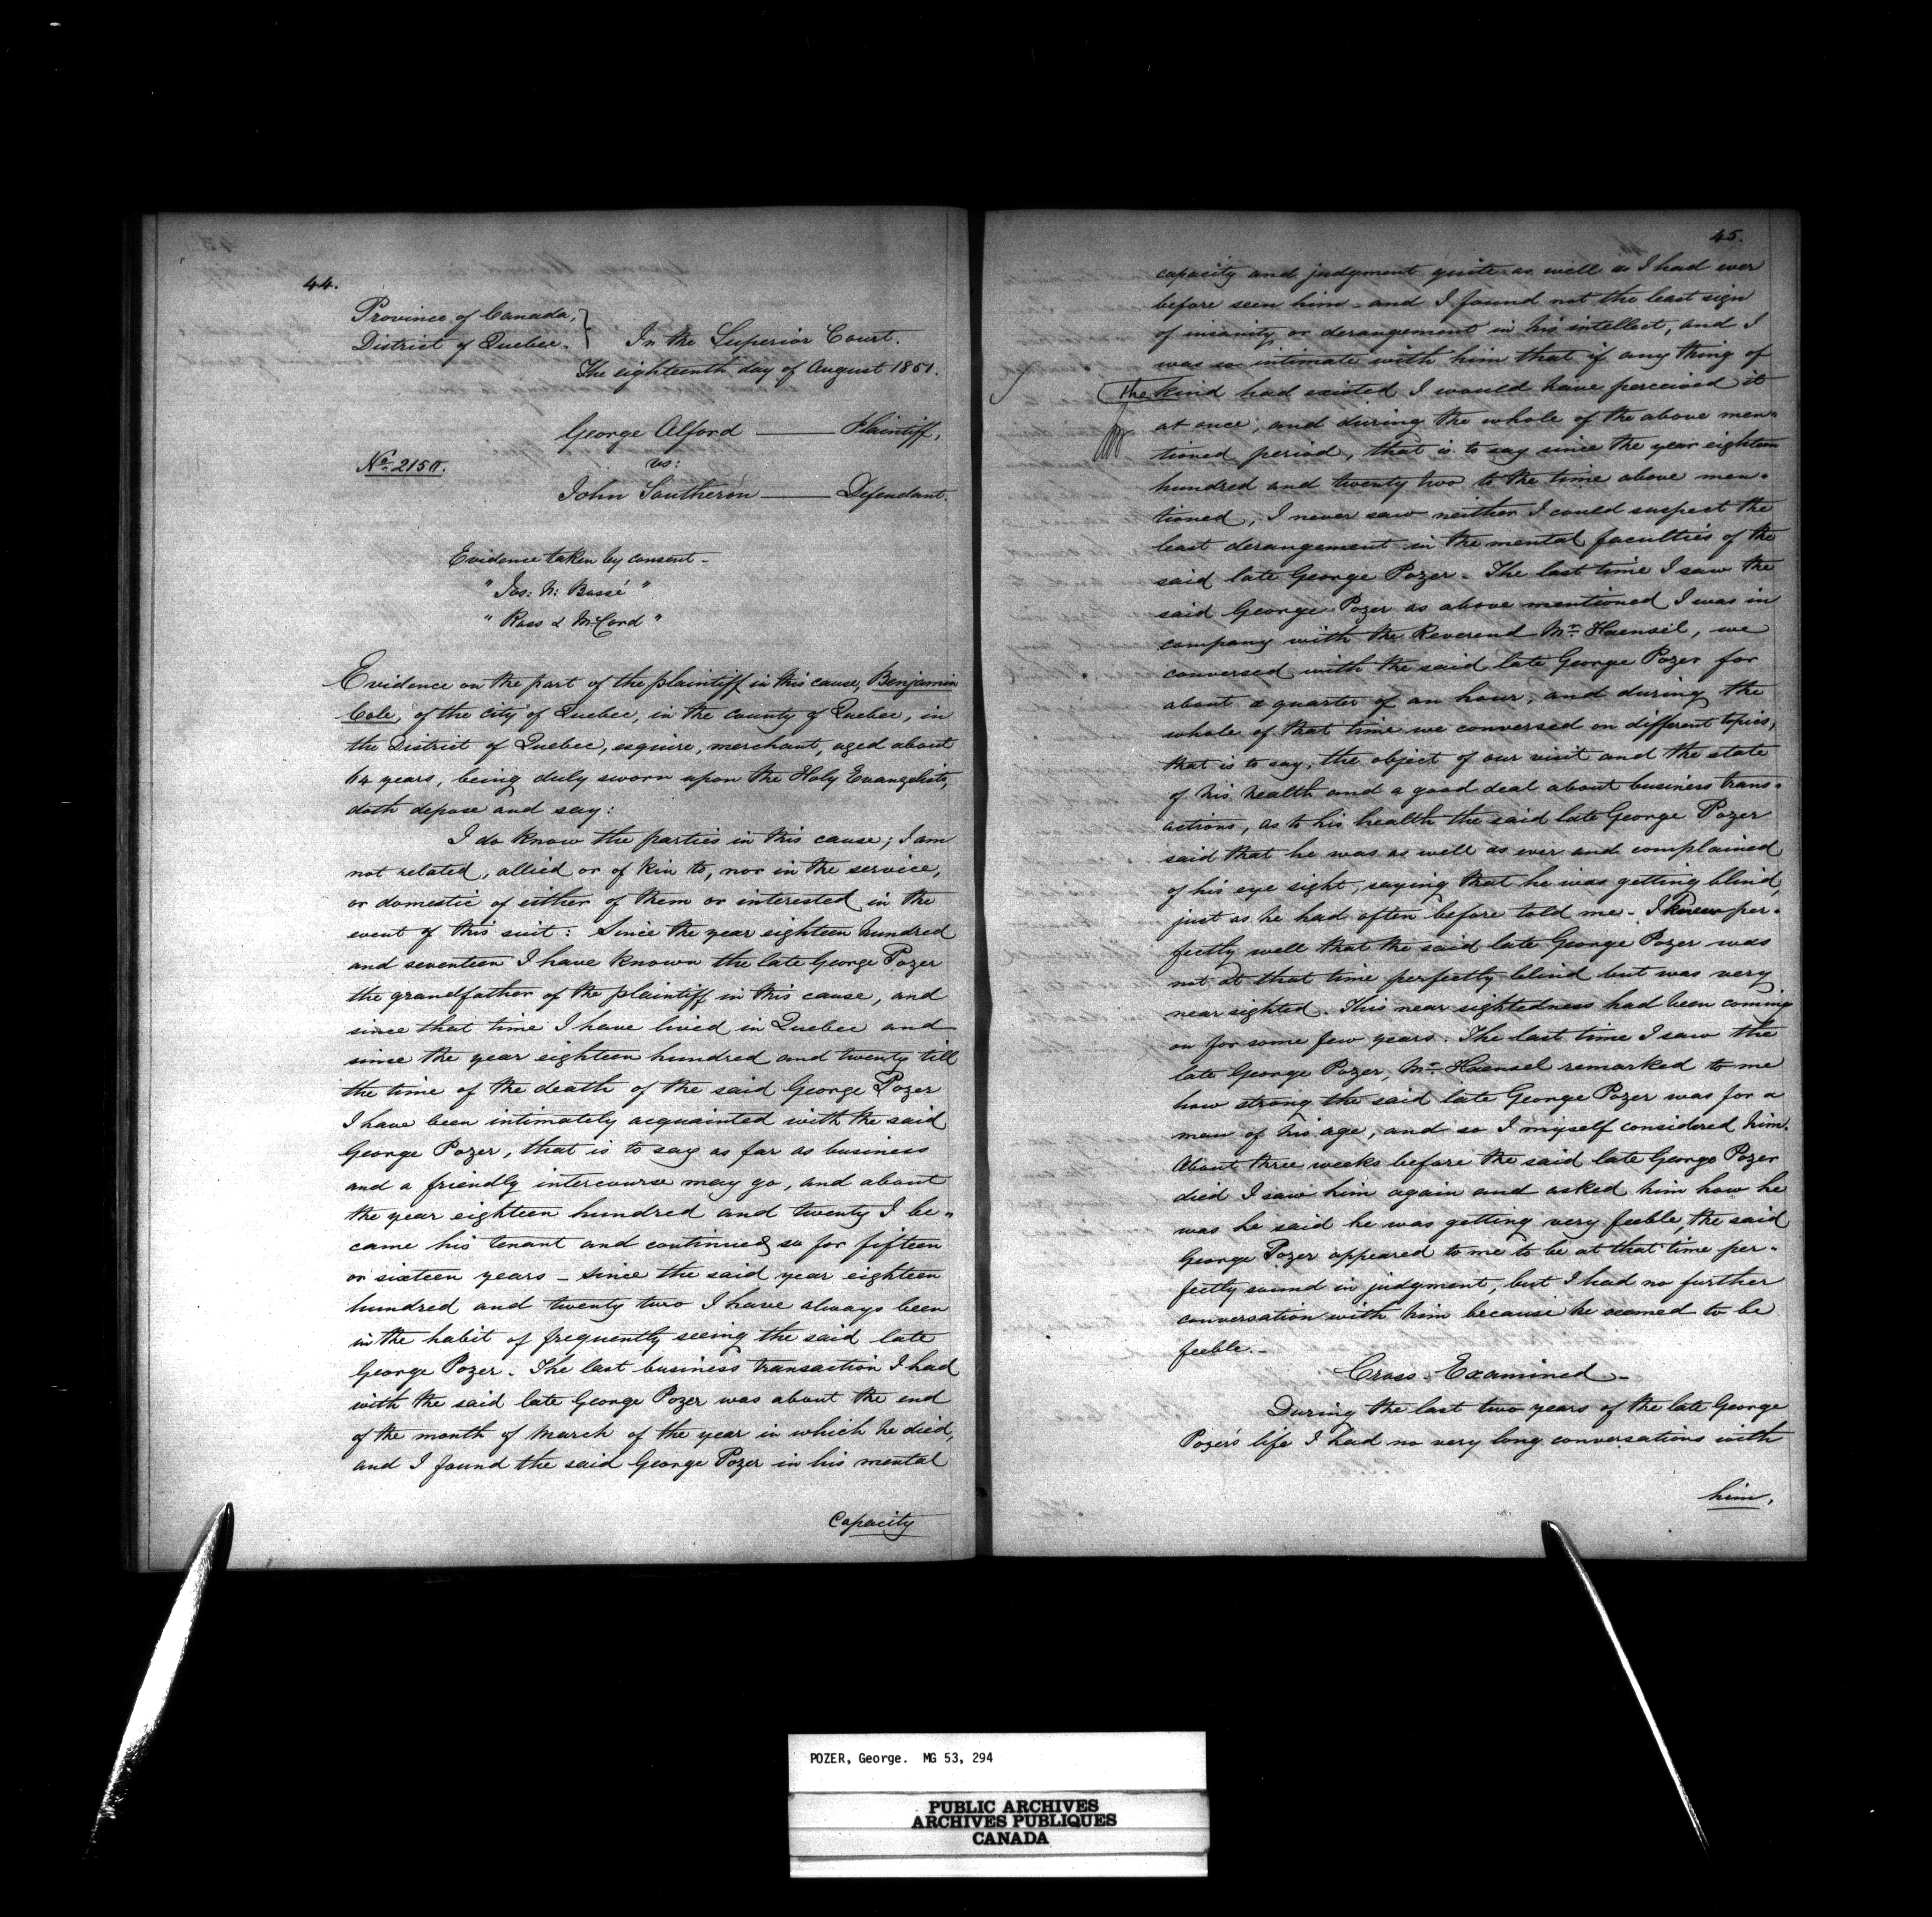 44.
Province of Canada, }
District of Quebec. } In the Superior Court.
The eighteenth day of August 1851.
George Alford —— Plaintiff,
No. 2150.
vs:
John Southeron —— Defendant.
Evidence taken by consent -
" Jos: N: Bossé "
" Ross & McCord "
Evidence on the part of the plaintiff in this cause, Benjamin
Cole, of the city of Quebec, in the county of Quebec, in
the District of Quebec, esquire, merchant, aged about
64 years, being duly sworn upon the Holy Evangelists,
doth depose and say:
I do know the parties in this cause; I am
not related, allied or of kin to, nor in the service,
or domestic of either of them or interested in the
event of this suit: Since the year eighteen hundred
and seventeen I have known the late George Pozer
the grandfather of the plaintiff in this cause, and
since that time I have lived in Quebec and
since the year eighteen hundred and twenty till
the time of the death of the said George Pozer
I have been intimately acquainted with the said
George Pozer, that is to say as far as business
and a friendly intercourse may go, and about
the year eighteen hundred and twenty I be"
came his tenant and continued so for fifteen
or sixteen years - since the said year eighteen
hundred and twenty two I have always been
in the habit of frequently seeing the said late
George Pozer. The last business transaction I had
with the said late George Pozer was about the end
of the month of March of the year in which he died,
and I found the said George Pozer in his mental
Capacity
45.
capacity and judgment quite as well as I had ever
before seen him - and I found not the least sign
of insanity or derangement in his intellect, and I
was so intimate with him that if any thing of
the kind had existed I would have perceived it
at once, and during the whole of the above men"
tioned period, that is to say since the year eighteen
hundred and twenty two to the time above men"
tioned, I never saw neither I could suspect the
least derangement in the mental faculties of the
said late George Pozer - The last time I saw the
said George Pozer as above mentioned I was in
company with the Reverend Mr. Haensel, we
conversed with the said late George Pozer for
about a quarter of an hour, and during the
whole of that time we conversed on different topics,
that is to say, the object of our visit and the state
of his health and a good deal about business trans"
actions, as to his health the said late George Pozer
said that he was as well as ever and complained
of his eye sight, saying that he was getting blind,
just as he had often before told me - I knew per"
fectly well that the said late George Pozer was
not at that time perfectly blind but was very
near sighted. This near sightedness had been coming
on for some few years. The last time I saw the
late George Pozer, Mr. Haensel remarked to me
how strong the said late George Pozer was for a
man of his age, and so I myself considered him.
About three weeks before the said late George Pozer
died I saw him again and asked him how he
was he said he was getting very feeble, the said
George Pozer appeared to me to be at that time per"
fectly sound in judgment, but I had no further
conversation with him because he seemed to be
feeble.-
Cross-Examined -
During the last two years of the late George
Pozer's life I had no very long conversations with
him,
POZER, George. MG 53, 294
PUBLIC ARCHIVES
ARCHIVES PUBLIQUES
CANADA